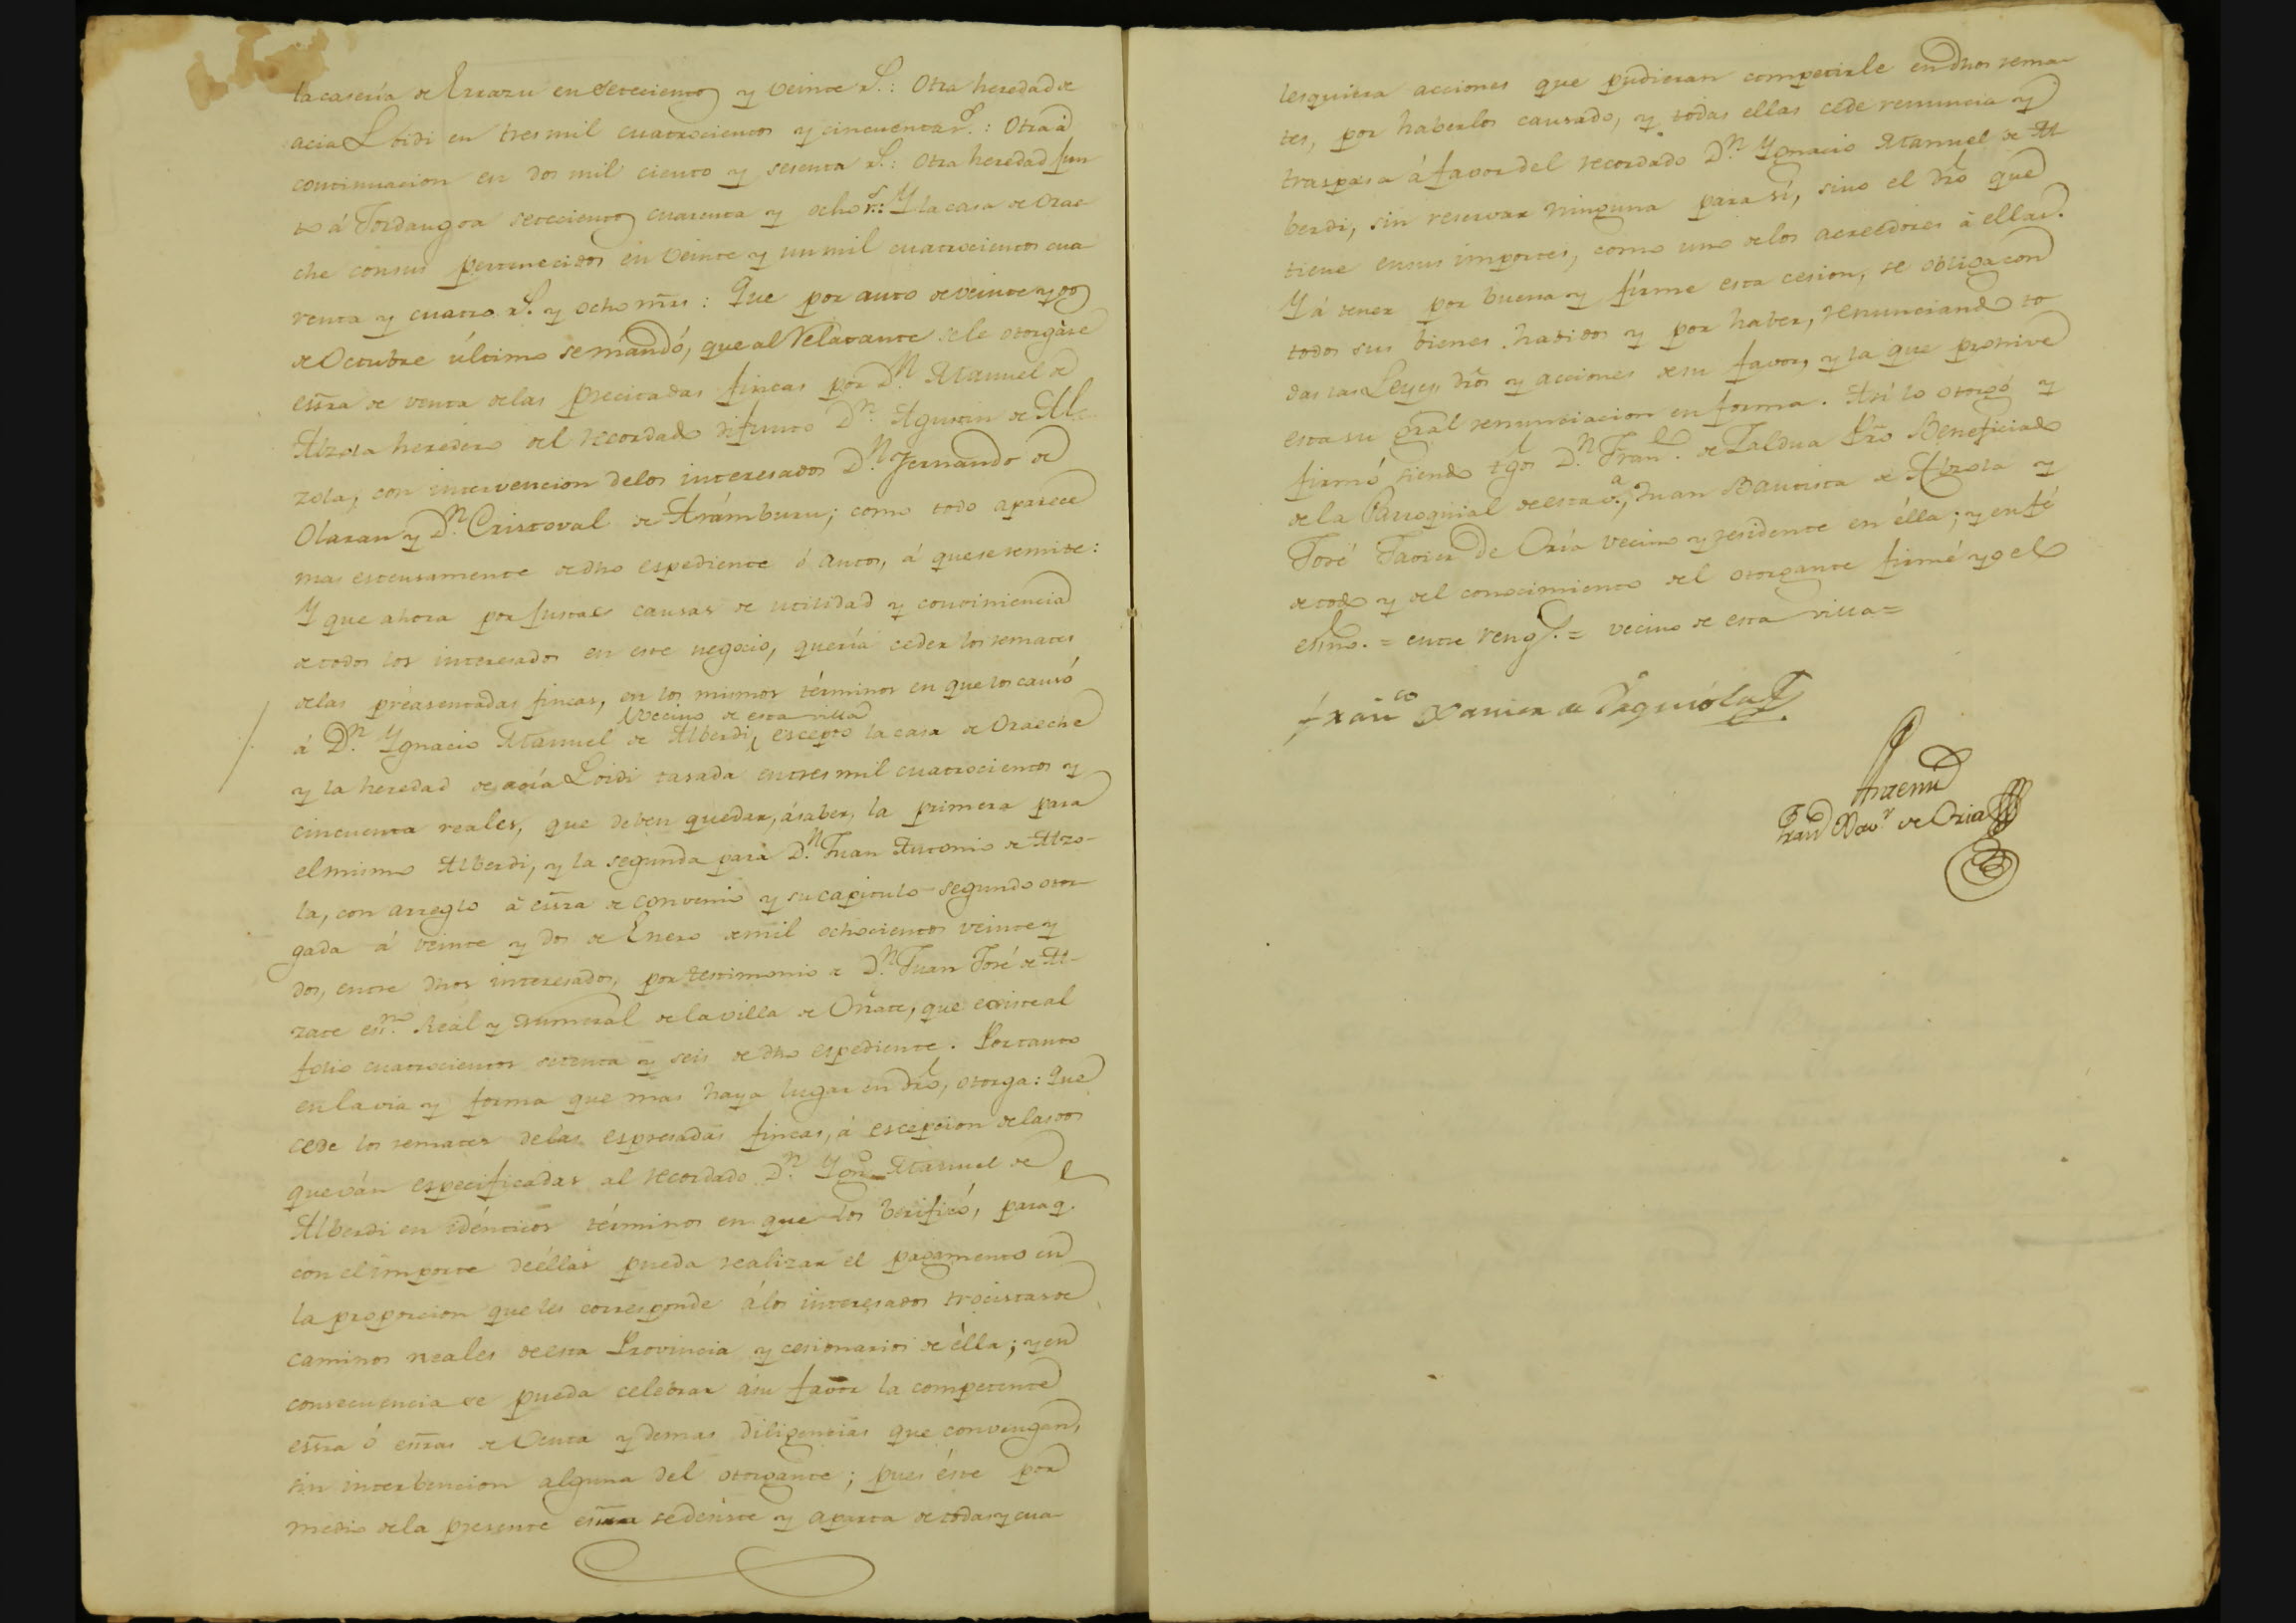 la casería de Errazu en setecientos y veinte r.s: Otra heredad de
acia Loidi en tres mil cuatrocientos y cincuenta r.s: Otra à
continuacion en dos mil ciento y sesenta r.s: Otra heredad jun
to á Jordangoa setecientos cuarenta y ocho r.s: Y la casa de Orae
che con sus pertenecidos en veinte y un mil cuatrocientos cua
renta y cuatro r.s y ocho mrs: Que por auto de veinte y dos
de Octubre último se mandó, que al Relatante se le otorgàse
essra de venta de las precitadas fincas por D.n Manuel de
Alzola heredero del recordado difunto D.n Agustin de Al-
zola, con intervencion de los interesados D.n Fernando de
Olaran y D.n Cristoval de Arámburu; como todo aparece
mas estensamente de dho espediente ó autos, á que se remite:
Y que ahora por justas causas de utilidad y conviniencia
de todos los interesados en este negocio, quería ceder los remates
de las préasentadas fincas, en los mismos términos en que los causó
vecino de esta villa
á D.n Ygnacio Manuel de Alberdi, escepto la casa de Oraeche
y la heredad de acía Loidi tasada en tres mil cuatrocientos y
cincuenta reales, que deben quedar, ásaber, la primera para
el mismo Alberdi, y la segunda para D.n Juan Antonio de Alzo-
la, con arreglo à essra de convenio y su capitulo segundo otor-
gada á veinte y dos de Enero de mil ochocientos veinte y
dos, entre dhos interesados, por testimonio de D.n Juan José de Al-
zate ess.no Reál y numeral de la villa de Oñate, que existe al
folio cuatrocientos setenta y seis de dho espediente. Por tanto
en la via y forma que mas haya lugar en dro, otorga: Que
cede los remates de las espresadas fincas, à escepcion de las dos
que ván especificadas al recordado D.n Ygn.o Manuel de
Alberdi en idénticos términos en que los berificó, para q.e
con el importe de éllas pueda realizar el pagamento en
la proporcion que les corresponde á los interesados trocistas de
caminos reales de esta Provincia y cesionarios de élla; y en
consecuencia se pueda celebrar á su favor la competente
essra ó essras de Venta y demas diligencias que convengan,
sin interbencion alguna del otorgante; pues éste por
medio de la presente essra se desiste y aparta de todas y cua-
lesquiera acciones que pudieran competirle en dhos rema-
tes, por haberlos causado, y todas ellas cede renuncia y
traspasa á favor del recordado D.n Ygnacio Manuel de Al
berdi, sin reservar ninguna para sí, sino el dro que
tiene en sus importes, como uno de los acreedores à ellas.
Y á tener por buena y firme esta cesion, se obliga con
todos sus bienes habidos y por haber, renunciando to-
das las Leyes dros y acciones de su favor, y la que prohive
esta su gral renunciacion en forma. Así lo otorgó y
firmó siendo tgos D.n Fran.co de Zaldua Pro Beneficiado
de la Parroquial de esta v.a, Juan Bautista de Alzola y
José Javier de Oría vecino y residente en élla; y en fé
de todo y del conocimiento del otorgante firmé yo el
essno. = entre reng.s = vecino de esta villa =
Fran.co Xavier de
Antemi
Fran.co Xav.r de Oria